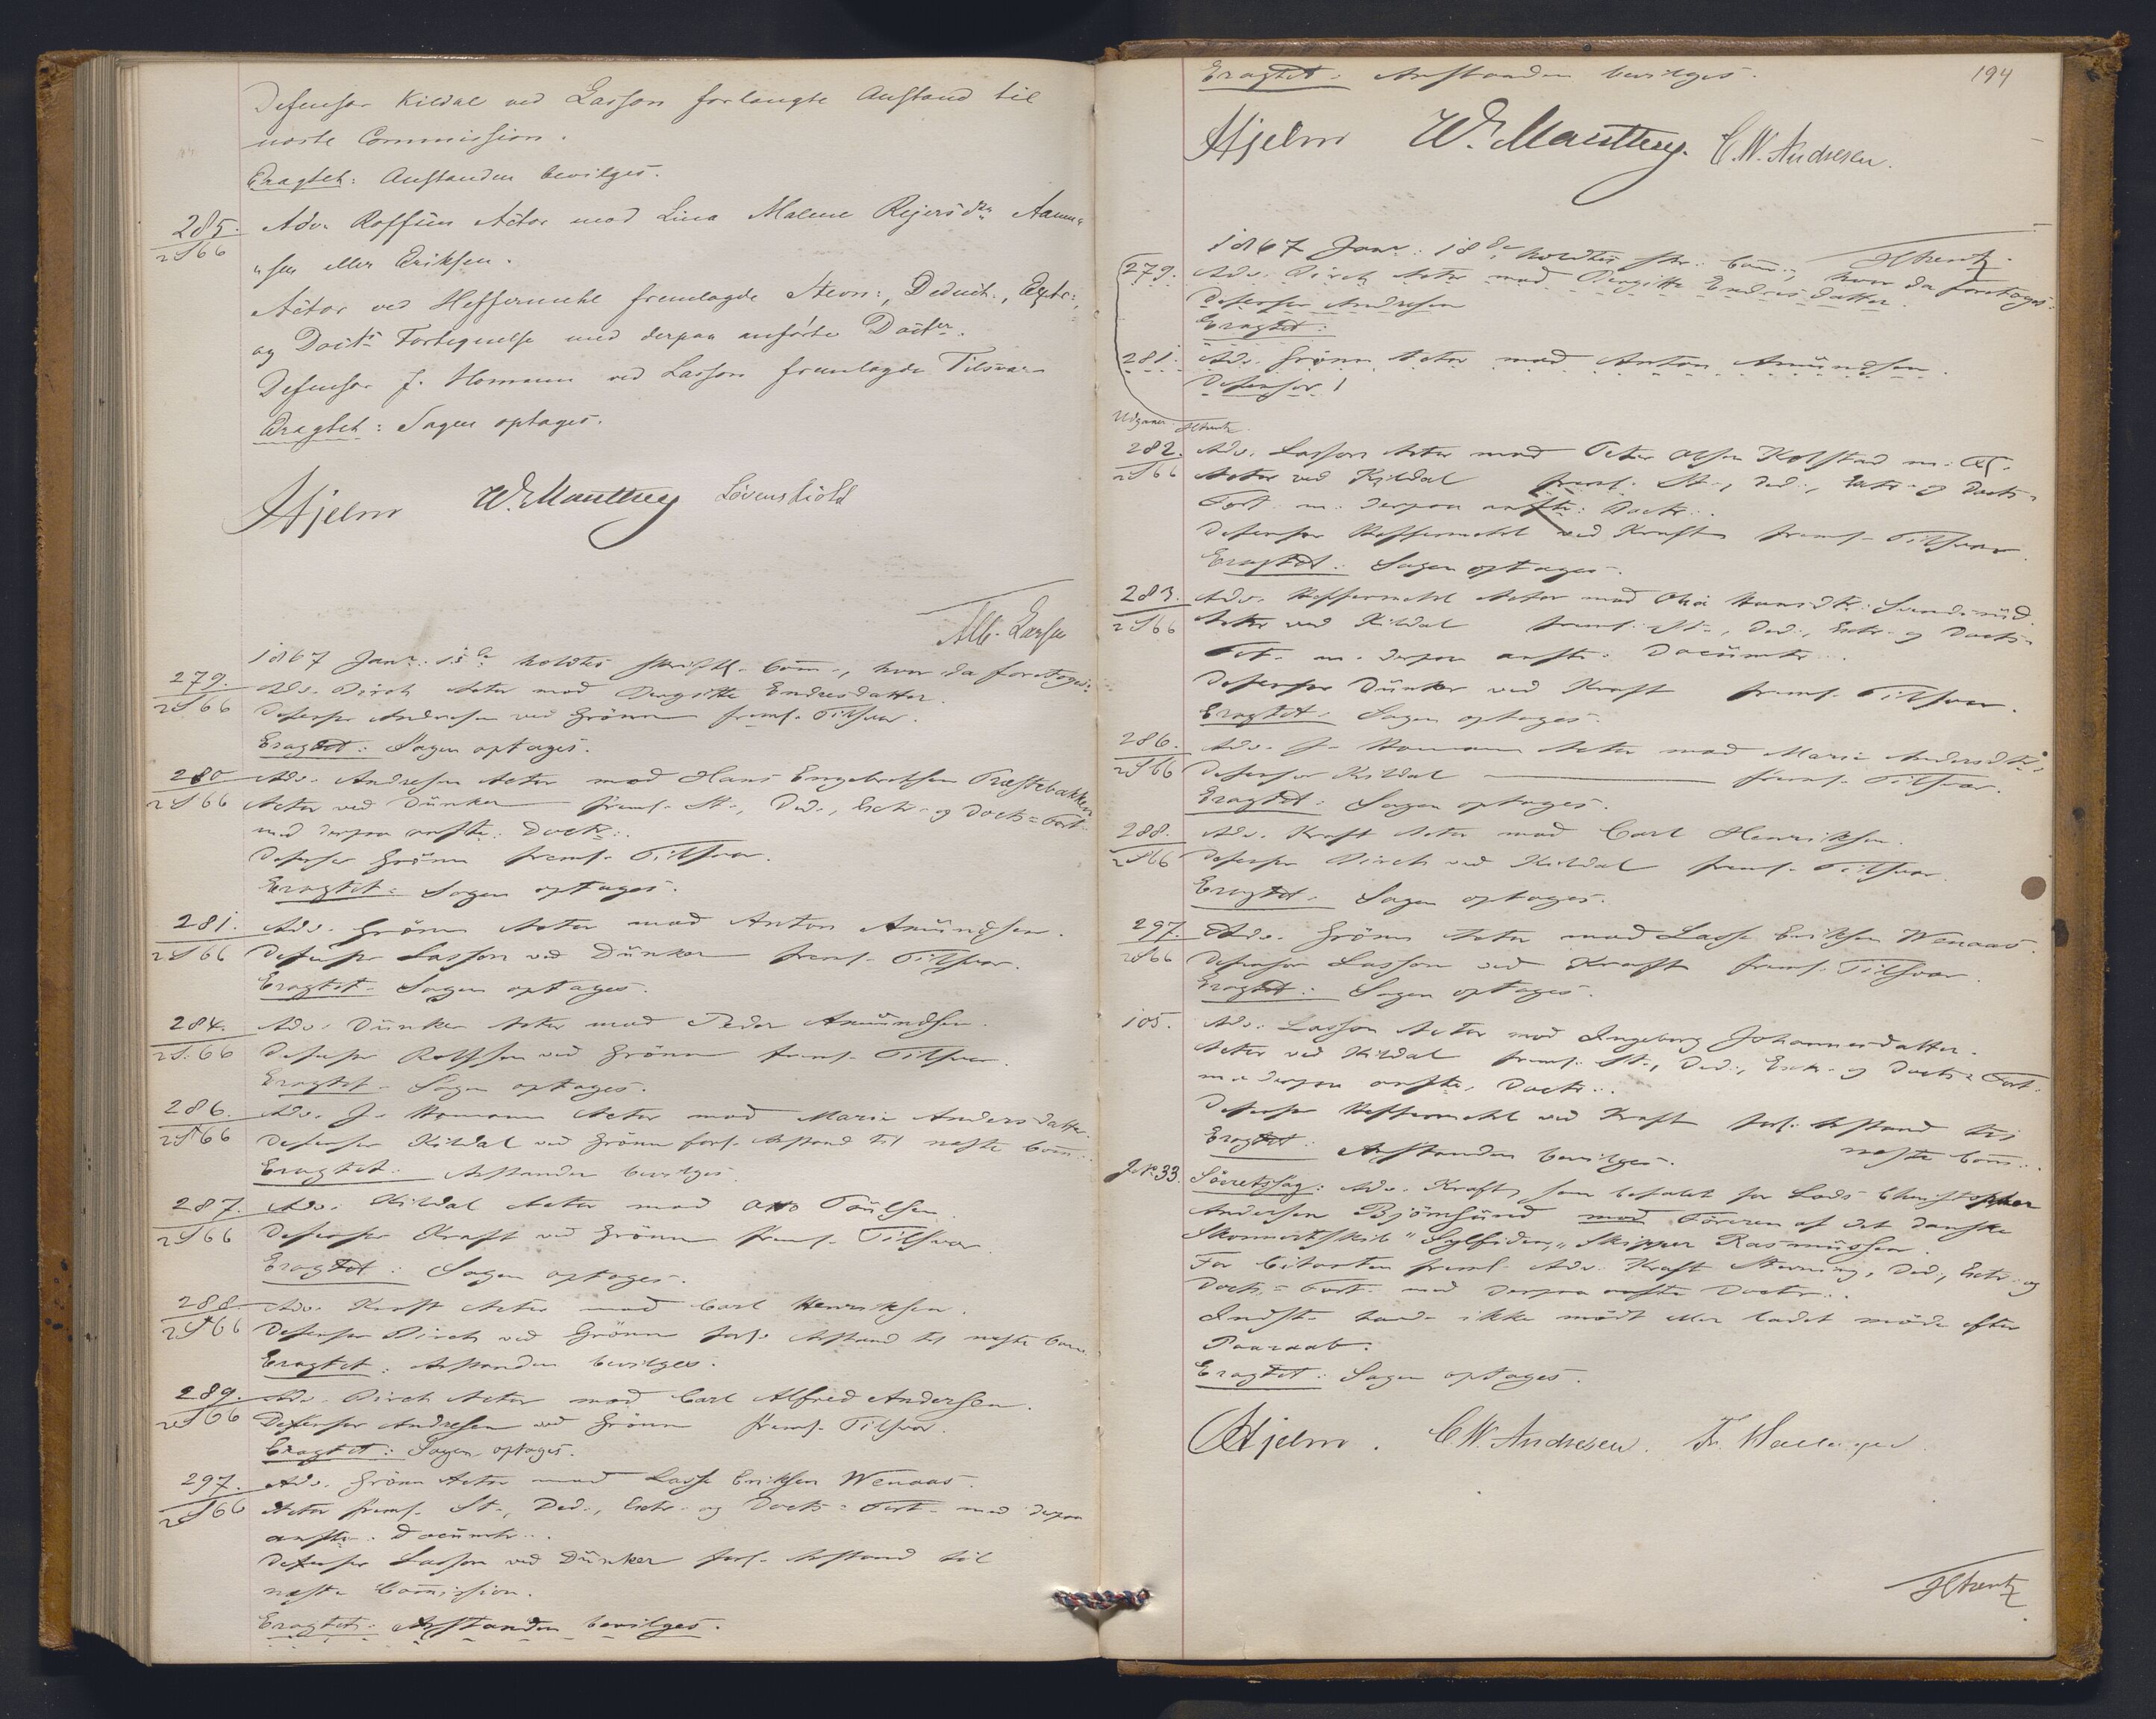 Defensor Kildal ved Lasson forlangte Anstand til
næste Commission.
Eragtet: Anstanden bevilges.
285. Adv. Rolfsen Actor mod Lina Malene Rejersdtr Aamu-
2 S 66 "sen eller Eriksen.
Actor ved Heffermehl fremlagde Stevn:, Deduct:, Extr:,
og Docts Fortegnelse med derpaa anførte Docter.
Defensor J. Homann ved Lasson fremlagde Tilsvar
Eragtet: Sagen optages.
Hjelm W. Manthey Løvenskiold
Alb. Larsen
1867 Janr: 15de holdtes skriftl. Com̄:, hvor da foretoges:
279. Adv. Birch Actor mod Bergitte Endresdatter.
2 S 66 Defensor Andresen ved Grönn freml. Tilsvar.
Eragtet: Sagen optages.
280 Adv. Andresen Actor mod Hans Engebretsen Præstebakken
2 S 66 Actor ved Dunker freml. St., Ded., Extr. og Docts = Fort.
med derpaa anfte: Doctr:.
Defensor Grönn freml. Tilsvar.
Eragtet: Sagen optages.
281. Adv. Grönn Actor mod Anton Amundsen.
2 S 66 Defensor Lasson ved Dunker freml. Tilsvar.
Eragtet: Sagen optages.
284. Adv. Dunker Actor mod Peder Amundsen.
2 S. 66 Defensor Rolfsen ved Grönn freml. Tilsvar.
Eragtet: Sagen optages.
286. Adv. J. Homann Actor mod Marie Andersdatter.
2 S 66 Defensor Kildal ved Grönn forl. Anstand til næste Com̄:.
Eragtet: Anstanden bevilges.
287. Adv. Kildal Actor mod Otto Poulsen
2 S 66 Defensor Kraft ved Grönn freml. Tilsvar
Eragtet: Sagen optages.
288 Adv. Kraft Actor mod Carl Henriksen.
2 S 66 Defensor Birch ved Grönn forl. Anstand til næste Com̄
Eragtet: Anstanden bevilges.
289. Adv. Birch Actor mod Carl Alfred Andersen.
2 S 66 Defensor Andresen ved Grönn freml. Tilsvar.
Eragtet: Sagen optages.
297. Adv. Grönn Actor mod Lasse Eriksen Wenaas.
2 S 66 Actor freml. St., Ded., Extr. og Docts = Fort. med derpaa
anfte. Documtr:.
Defensor Lasson ved Dunker forl. Anstand til
næste Com̄ission.
Eragtet: Anstanden bevilges.
194
Eragtet: Anstanden bevilges.
Hjelm W. Manthey. C. W. Andresen.
1867 Janr: 18de holdtes skr: Com̄:, hvor da foretoges:
279. Adv. Birch Actor mod Bergitte Endresdatter.
Defensor Andresen
Eragtet:
281. Adv. Grönn Actor mod Anton Amundsen.
Defensor
Udgaaer
282. Adv. Lasson Actor mod Peter Olsen Kolstad m: Fl.
2 S 66 Actor ved Kildal freml. St., Ded., Extr. og Docts =
Fort. m. derpaa anfte: Doctr:.
Defensor Heffermehl ved Kraft freml. Tilsvar.
Eragtet: Sagen optages.
283. Adv. Heffermehl Actor mod Olea Hansdtr: Sundsrud.
2 S 66 Actor ved Kildal freml. St., Ded., Extr. og Docts =
Fort. m. derpaa anfte. Documtr:.
Defensor Dunker ved Kraft freml. Tilsvar.
Eragtet: Sagen optages.
286. Adv. J. Homann Actor mod Marie Andersdtr:
2 S 66 Defensor Kildal freml. Tilsvar.
Eragtet: Sagen optages.
288. Adv. Kraft Actor mod Carl Henriksen.
2 S 66 Defensor Birch ved Kildal freml. Tilsvar.
Eragtet: Sagen optages.
297. Adv. Grönn Actor mod Lasse Eriksen Wenaas.
2 S 66 Defensor Lasson ved Kraft freml. Tilsvar.
Eragtet: Sagen optages.
105. Adv. Lasson Actor mod Ingeborg Johannesdatter.
Actor ved Kildal freml. St., Ded., Extr. og Docts = Fort.
m. derpaa anfte. Doctr:.
Defensor Heffermehl ved Kraft forl. Anstand til
næste Com̄:.
Eragtet: Anstanden bevilges.
J.No 33. Söretssag: Adv. Kraft, som befalet for Lods Christopher
Andersen Björnsund mod Föreren af det danske
Skonnertskib "Sylfiden," Skipper Rasmussen.
For Citanten freml. Adv. Kraft Stevning, Ded., Extr. og
Docts = Fort. med derpaa anfte Doctr:.
Indst. havde ikke mödt eller ladet möde efter
Paaraab.
Eragtet: Sagen optages.
Hjelm. C. W. Andresen.